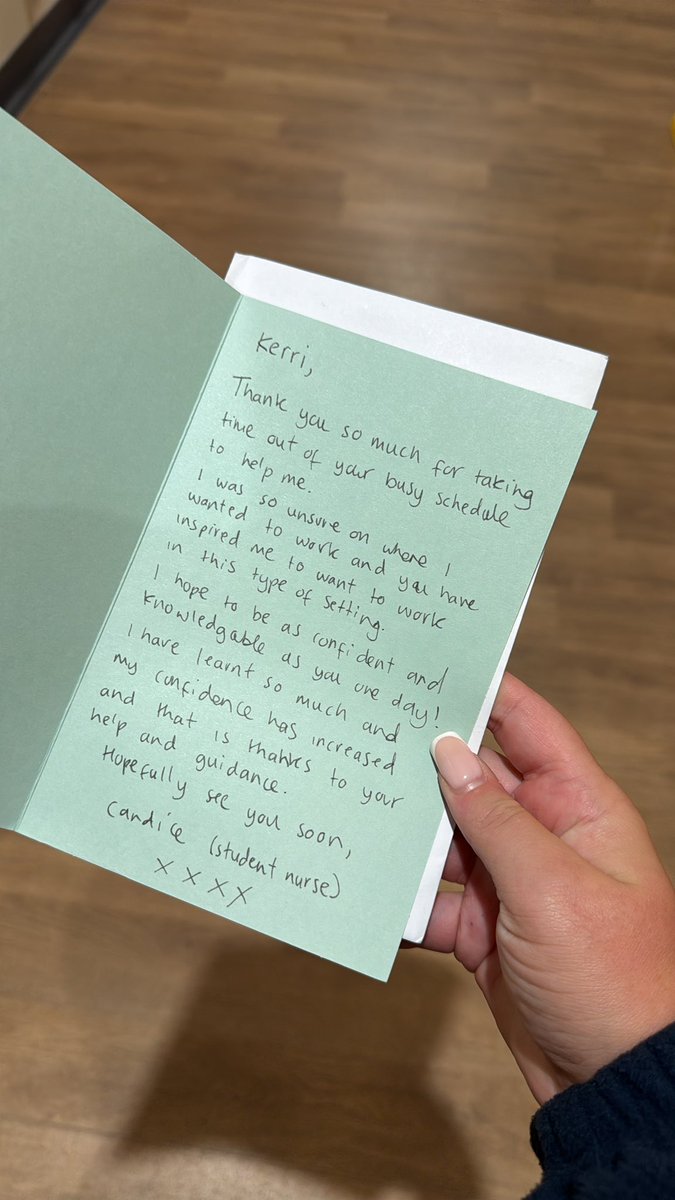 Kerri,
Thank you so much for taking
time out of your busy schedule
to help me.
I was so unsure on where I
wanted to work and you have
inspired me to want to work
in this type of setting.
I hope to be as confident and
knowledgable as you one day!
I have learnt so much and
my confidence has increased
and that is thanks to your
help and guidance.
Hopefully see you soon,
Candice (student nurse)
x x x x